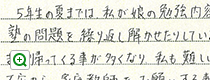 5年生の夏までは、私が娘の勉強内容
塾の問題を繰り返し解かせたりしてい
帰ってくる事が多くなり、私も難しい